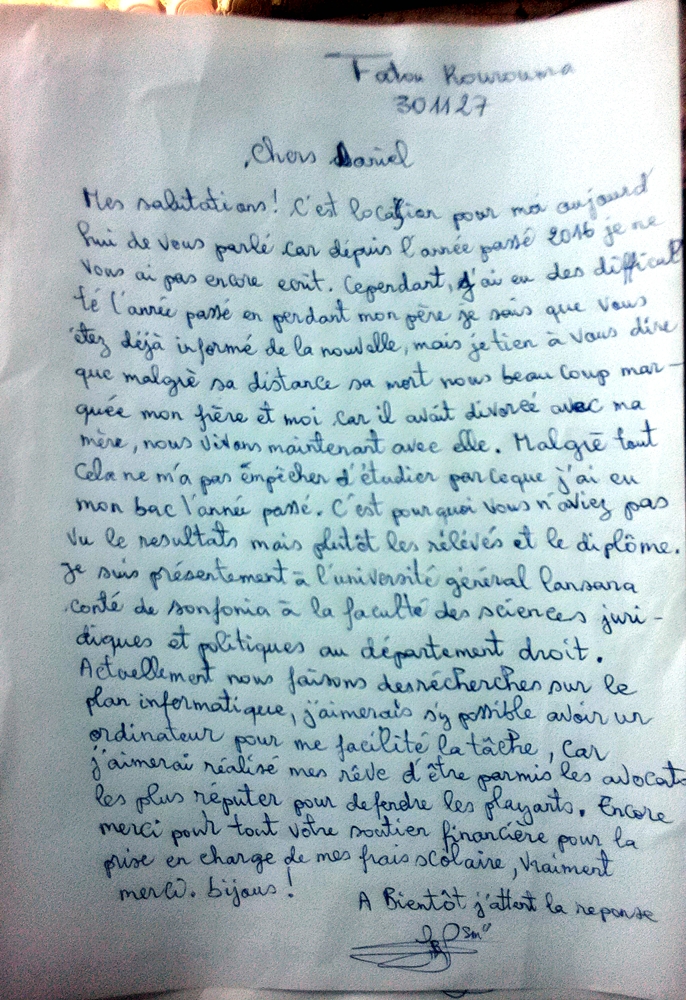 Fatou Kourouma
301127
Chers Daniel
Mes salutations! C'est l'ocasion pour moi aujourd
hui de vous parlé car dépuis l'année passé 2016 je ne
vous ai pas encore ecrit. Cependant, j'ai eu des difficul
té l'année passé en perdant mon père je sais que vous
étez déjà informé de la nouvelle, mais je tien à vous dire
que malgrè sa distance sa mort nous beaucoup mar-
quée mon frère et moi car il avait divorcé avec ma
mère, nous vivons maintenant avec elle. Malgrè tout
cela ne m'a pas empêcher d'étudier parceque j'ai eu
mon bac l'année passé. C'est pourquoi vous n'aviez pas
vu le resultats mais plutôt les rélévés et le diplôme.
Je suis présentement à l'université général lansana
conté de sonfonia à la faculté des sciences juri-
diques et politiques au département droit.
Actuellement nous faisons des récherches sur le
plan informatique, j'aimerais s'y possible avoir un
ordinateur pour me facilité la tâche, car
j'aimerai réalisé mes rêve d'être parmis les avocats
les plus réputer pour defendre les playants. Encore
merci pour tout votre soutien financière pour la
prise en charge de mes frais scolaire, vraiment
merci. bijous!
A Bientôt j'attent la reponse